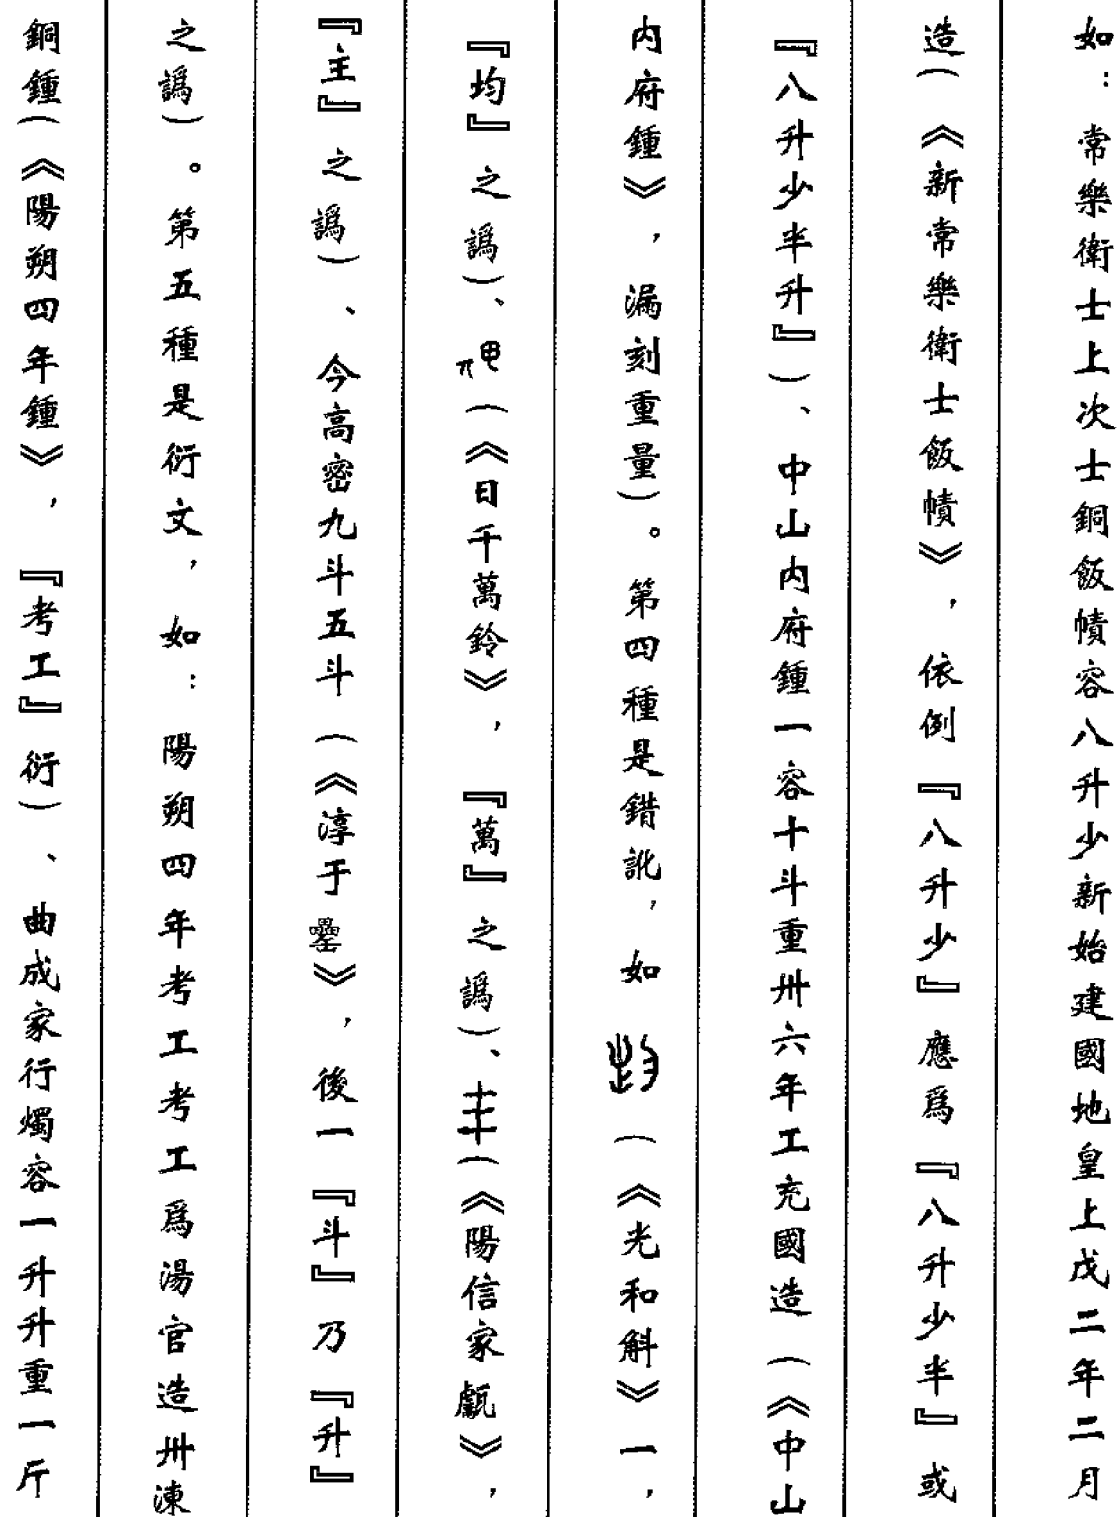 如：常樂衛士上次士銅飯幘容八升少新始建國地皇上戊二年二月
造（《新常樂衛士飯幘》，依例『八升少』應爲『八升少半』或
『八升少半升』）、中山内府鍾一容十斗重卅六年工充國造（《中山
内府鍾》，漏刻重量）。第四種是錯訛，如（《光和斛》一，
『均』之譌）、（《日千萬鈴》，『萬』之譌）、（《陽信家甗》，
『主』之譌）、今高密九斗五斗（《淳于罍》，後一『斗』乃『升』
之譌）。第五種是衍文，如：陽朔四年考工考工爲湯官造卅湅
銅鍾（《陽朔四年鍾》，『考工』衍）、曲成家行燭容一升升重一斤